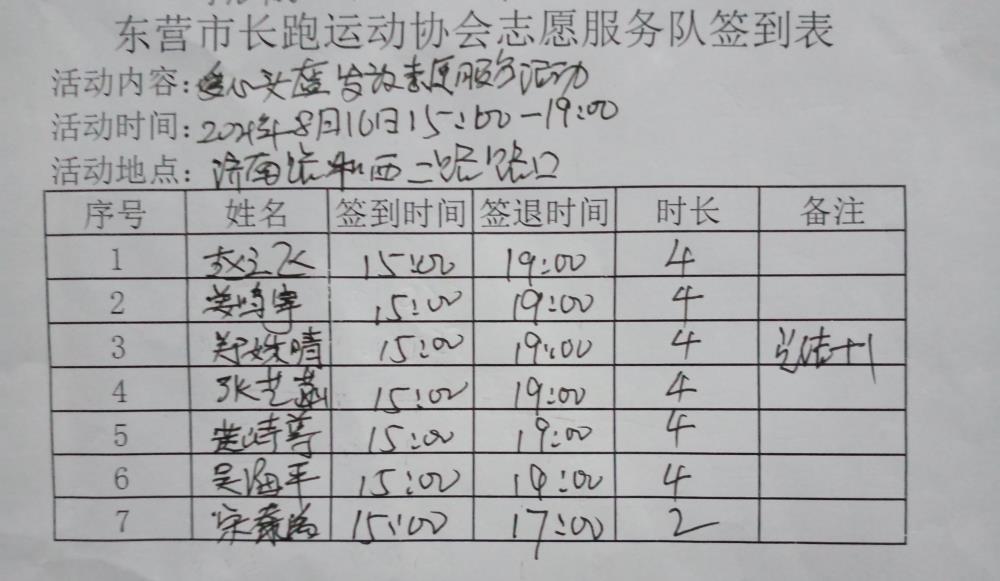 东营市长跑运动协会志愿服务队签到表
活动内容:爱心头盔发放志愿服务活动
活动时间:2021年8月16日15:00-19:00
活动地点:济南路和西二路路口
序号 姓名 签到时间 签退时间 时长 备注
1 15:00 19:00 4
2 姜鸣宇 15:00 19:00 4
3 郑姝晴 15:00 19:00 4 +1
4 张艺 15:00 19:00 4
5 15:00 19:00 4
6 吴海平 15:00 19:00 4
7 宋 15:00 17:00 2